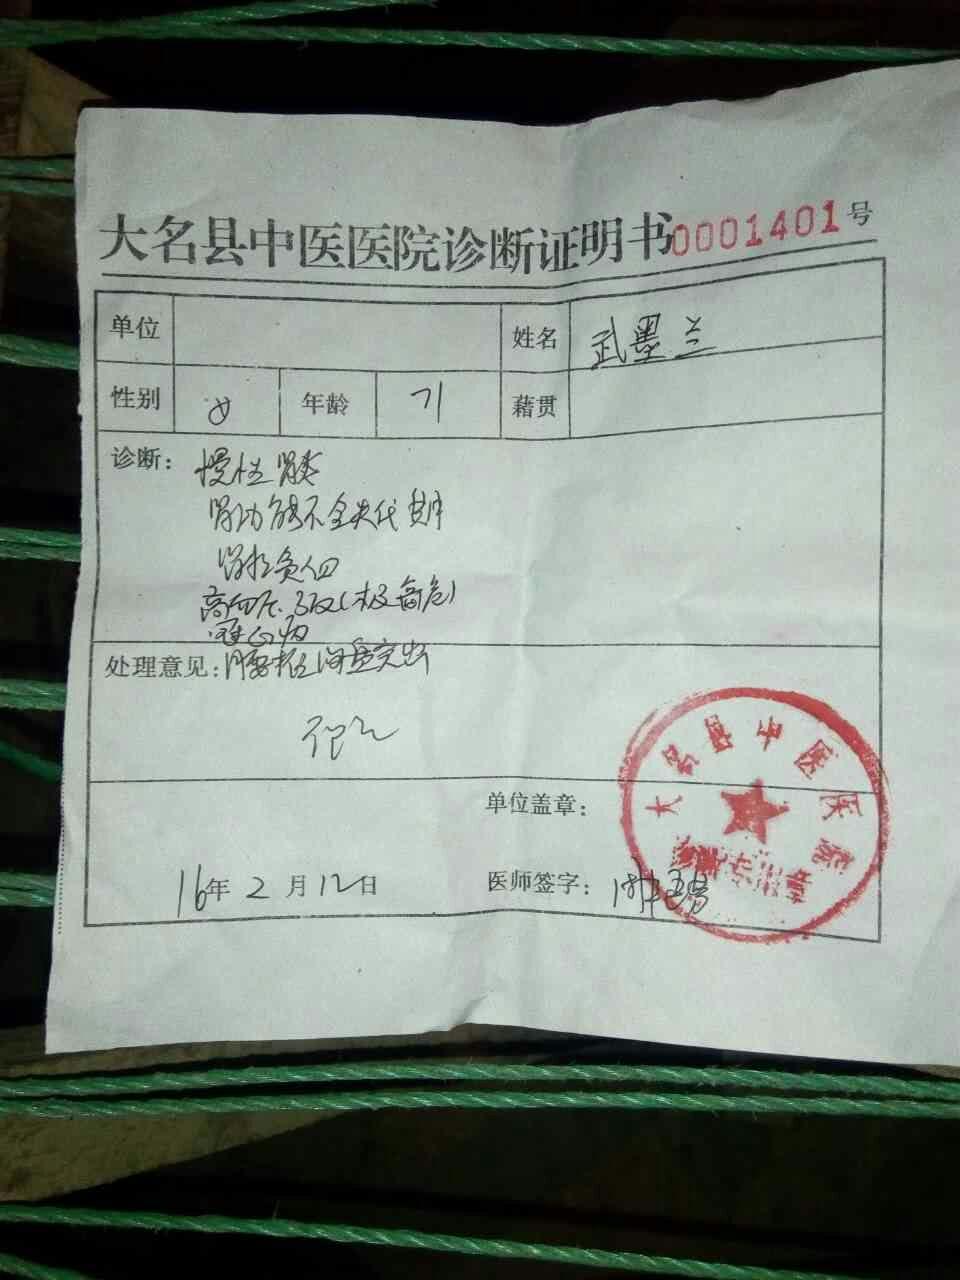 大名县中医医院诊断证明书0001401号
单位 姓名 武墨兰
性别 女 年龄 71 藉贯
诊断: 慢性肾炎
肾功能不全失代偿期
高血压3级(极高危)
冠心病
处理意见: 腰椎间盘突出
单位盖章:
16年2月12日 医师签字:
大名县中医医院